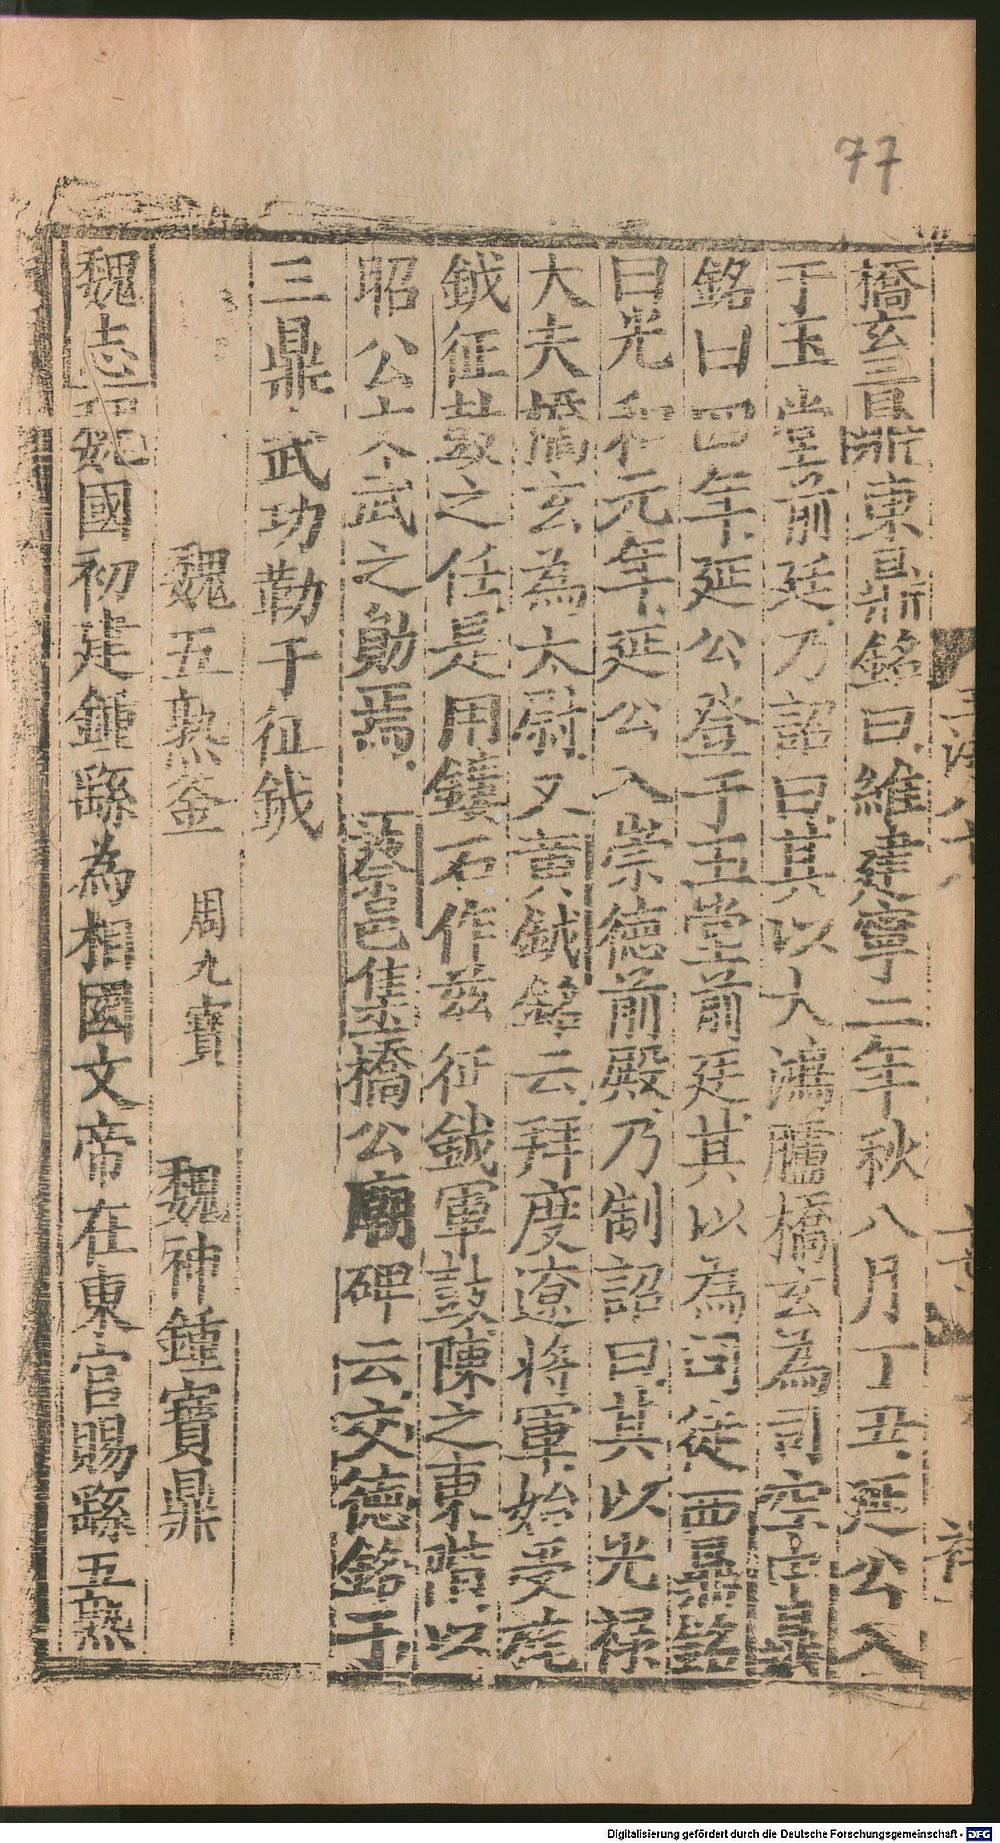 77
橋玄三鼎東鼎銘曰維建寧三年秋八月丁丑延公入
于玉堂前廷乃詔曰其以大鴻臚橋玄為司空中鼎
銘曰四年延公登于玉堂前廷其以為司徒西鼎銘
曰光和元年延公入崇德前殿乃制詔曰其以光祿
大夫橋玄為太尉又黃鉞銘云拜度遼將軍始受旄
鉞征鼓之任是用鏤石作茲征鉞軍鼓陳之東階以
昭公文武之勛焉 蔡邕集橋公廟碑云文德銘于
三鼎武功勒于征鉞
魏五熟釜 周九寶 魏神鍾寶鼎
魏志魏國初建鍾繇為相國文帝在東宮賜繇五熟
Digitalisierung gefördert durch die Deutsche Forschungsgemeinschaft - DFG